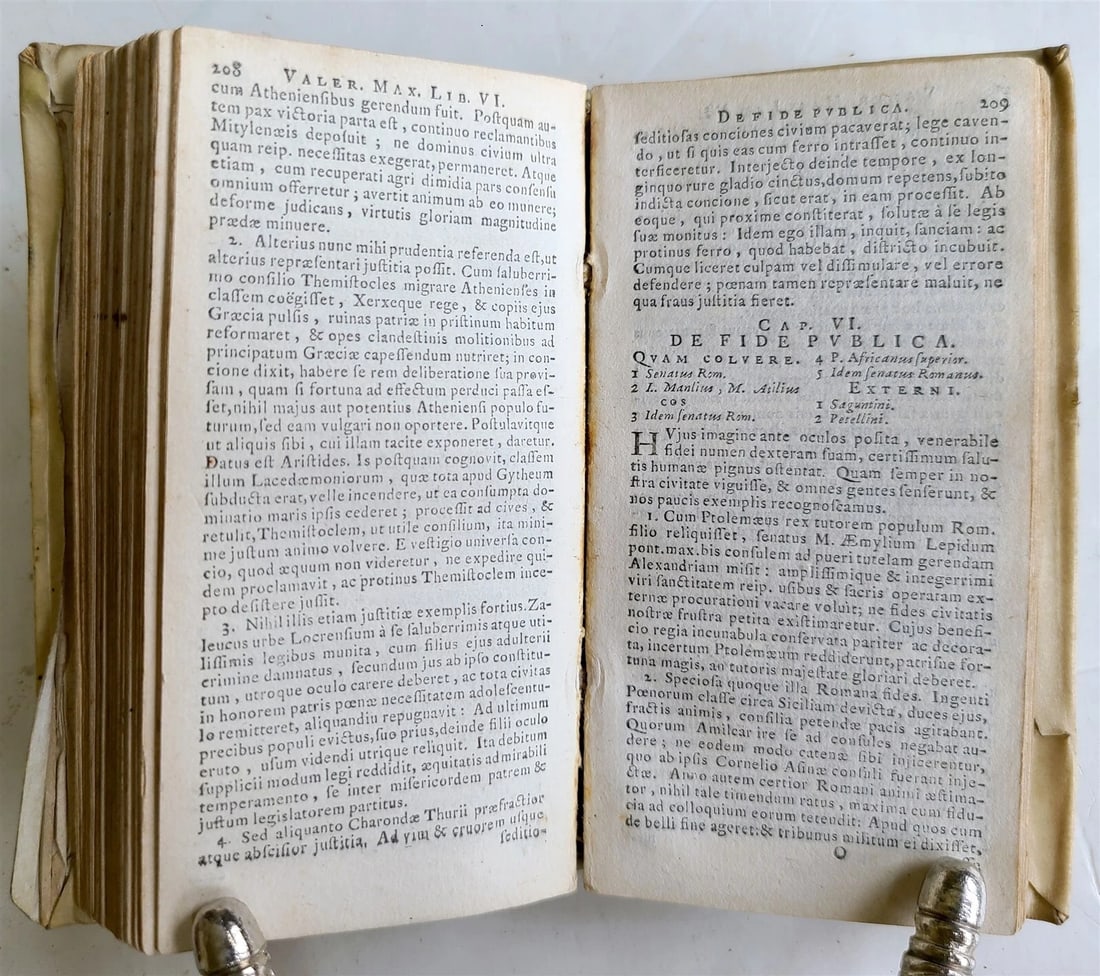 208 VALER. MAX. LIB. VI.
cum Atheniensibus gerendum fuit. Postquam au-
tem pax victoria parta est, continuo reclamantibus
Mitylenæis deposuit ; ne dominus civium ultra
quam reip. necessitas exegerat, permaneret. Atque
etiam, cum recuperati agri dimidia pars consensu
omnium offerretur ; avertit animum ab eo munere;
deforme judicans, virtutis gloriam magnitudine
prædæ minuere.
2. Alterius nunc mihi prudentia referenda est, ut
alterius repræsentari justitia possit. Cum saluberri-
mo consilio Themistocles migrare Athenienses in
classem coëgisset, Xerxeque rege, & copiis ejus
Græcia pulsis, ruinas patriæ in pristinum habitum
reformaret, & opes clandestinis molitionibus ad
principatum Græciæ capessendum nutriret; in con-
cione dixit, habere se rem deliberatione sua provi-
sam, quam si fortuna ad effectum perduci passa es-
set, nihil majus aut potentius Atheniensi populo fu-
turum, sed eam vulgari non oportere. Postulavitque
ut aliquis sibi, cui illam tacite exponeret, daretur.
Datus est Aristides. Is postquam cognovit, classem
illum Lacedæmoniorum, quæ tota apud Gytheum
subducta erat, velle incendere, ut ea consumpta do-
minatio maris ipsis cederet ; processit ad cives, &
retulit, Themistoclem, ut utile consilium, ita mini-
me justum animo volvere. E vestigio universa con-
cio, quod æquum non videretur, ne expedire qui-
dem proclamavit, ac protinus Themistoclem ince-
pto desistere jussit.
3. Nihil illis etiam justitiæ exemplis fortius. Za-
leucus urbe Locrensium à se saluberrimis atque uti-
lissimis legibus munita, cum filius ejus adulterii
crimine damnatus, secundum jus ab ipso constitu-
tum, utroque oculo carere deberet, ac tota civitas
in honorem patris pœnæ necessitatem adolescentu-
lo remitteret, aliquandiu repugnavit : Ad ultimum
precibus populi evictus, suo prius, deinde filii oculo
eruto, usum videndi utrique reliquit. Ita debitum
supplicii modum legi reddidit, æquitatis admirabili
temperamento, se inter misericordem patrem &
justum legislatorem partitus.
4. Sed aliquanto Charondæ Thurii præfractior
atque abscisior justitia. Ad vim & cruorem usque
seditio-
DE FIDE PVBLICA. 209
seditiosas conciones civium pacaverat; lege caven-
do, ut si quis eas cum ferro intrasset, continuo in-
terficeretur. Interjecto deinde tempore, ex lon-
ginquo rure gladio cinctus, domum repetens, subito
indicta concione, sicut erat, in eam processit. Ab
eoque, qui proxime constiterat, solutæ à se legis
suæ monitus : Idem ego illam, inquit, sanciam : ac
protinus ferro, quod habebat, districto incubuit.
Cumque liceret culpam vel dissimulare, vel errore
defendere ; pœnam tamen repræsentare maluit, ne
qua fraus justitia fieret.
CAP. VI.
DE FIDE PVBLICA.
QVAM COLVERE.
1 Senatus Rom.
2 L. Manlius, M. Atilius
COS
3 Idem senatus Rom.
4 P. Africanus superior.
5 Idem senatus Romanus.
EXTERNI.
1 Saguntini.
2 Petellini.
HVjus imagine ante oculos posita, venerabile
fidei numen dexteram suam, certissimum salu-
tis humanæ pignus ostentat. Quam semper in no-
stra civitate viguisse, & omnes gentes senserunt, &
nos paucis exemplis recognoscamus.
1. Cum Ptolemæus rex tutorem populum Rom.
filio reliquisset, senatus M. Æmylium Lepidum
pont. max. bis consulem ad pueri tutelam gerendam
Alexandriam misit : amplissimique & integerrimi
viri sanctitatem reip. usibus & sacris operatam ex-
ternæ procurationi vacare voluit; ne fides civitatis
nostræ frustra petita existimaretur. Cujus benefi-
cio regia incunabula conservata pariter ac decora-
ta, incertum Ptolemæum reddiderunt, patrisne for-
tuna magis, an tutoris majestate gloriari deberet.
2. Speciosa quoque illa Romana fides. Ingenti
Pœnorum classe circa Siciliam devicta, duces ejus,
fractis animis, consilia petendæ pacis agitabant.
Quorum Amilcar ire se ad consules negabat au-
dere ; ne eodem modo catenæ sibi injicerentur,
quo ab ipsis Cornelio Asinæ consuli fuerant inje-
ctæ. Anno autem certior Romani animi æstima-
tor, nihil tale timendum ratus, maxima cum fidu-
cia ad colloquium eorum tetendit: Apud quos cum
de belli fine ageret: & tribunus militum ei dixisset,
O